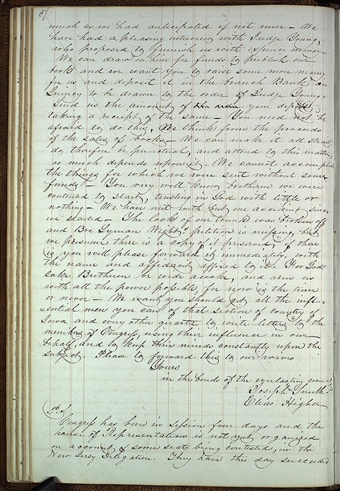 much as we had anticipated if not more — We
have had a pleasing interview with Judge Young
who proposed to furnish us with expence money
We can draw on him for funds to publish our
book and we want you to raise some more money
for us and deposit it in the Branch Bank in
Quincy to be drawn to the order of Judge Young
Send us the amount of your deposit
taking a receipt of the same — You need not be
afraid to do this, We think from the proceeds
of the sale of Book — We can make it all straight
do, therefore be punctual, and attend to this matter
as much depends upon it. We cannot accomplish
the things for which we were sent without some
funds — You very well know brethren we were
contented to start, trusting in God with little or
nothing — We have met with but one accident since
we started — The lock of our trunk was broken off
and Bro. Lyman Wight's petition is missing, but
we presume there is a copy of it preserved if there
is you will please forward it immediately with
the name and affidavit affixed to it. For Gods
sake Brethren be wide awake, and arm us
with all the power possible for now is the time
or never — We want you should get all the influ-
ential men you can of that section of country of
Iowa and every other quarter to write letters to the
members of Congress using their influence in our
behalf and to keep their minds constantly upon the
subject. Please to forward this to our wives
Yours
in the bonds of the everlasting covenant
Joseph Smith Jr
Elias Higbee
Congress has been in session four days and the
house of Representatives is not yet organized
on account of some seats being contested, in the
New Jersey Delegation. They have this day succeeded